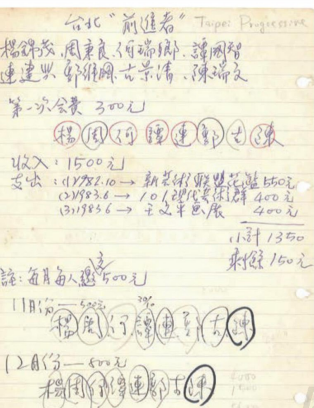 台北"前進者" Taipei Progressive
楊錦茂,周東良,何瑞卿,譚國智
連建興,郭維國,古榮清,陳瑞文
第一次会费 300元
楊 周 何 譚 連 郭 古 陳
收入:1500元
支出:(1)1982.10→新芙術聯盟花籃550元
(2)1983.6→101現代芙術群 400元
(3)1983.6→王文平画展 400元
小計 1350
剩餘150元
註:每月每人繳500元
11月份—500元
楊 周 何 譚 連 郭 古 陳
12月份—500元
楊 周 何 譚 連 郭 古 陳